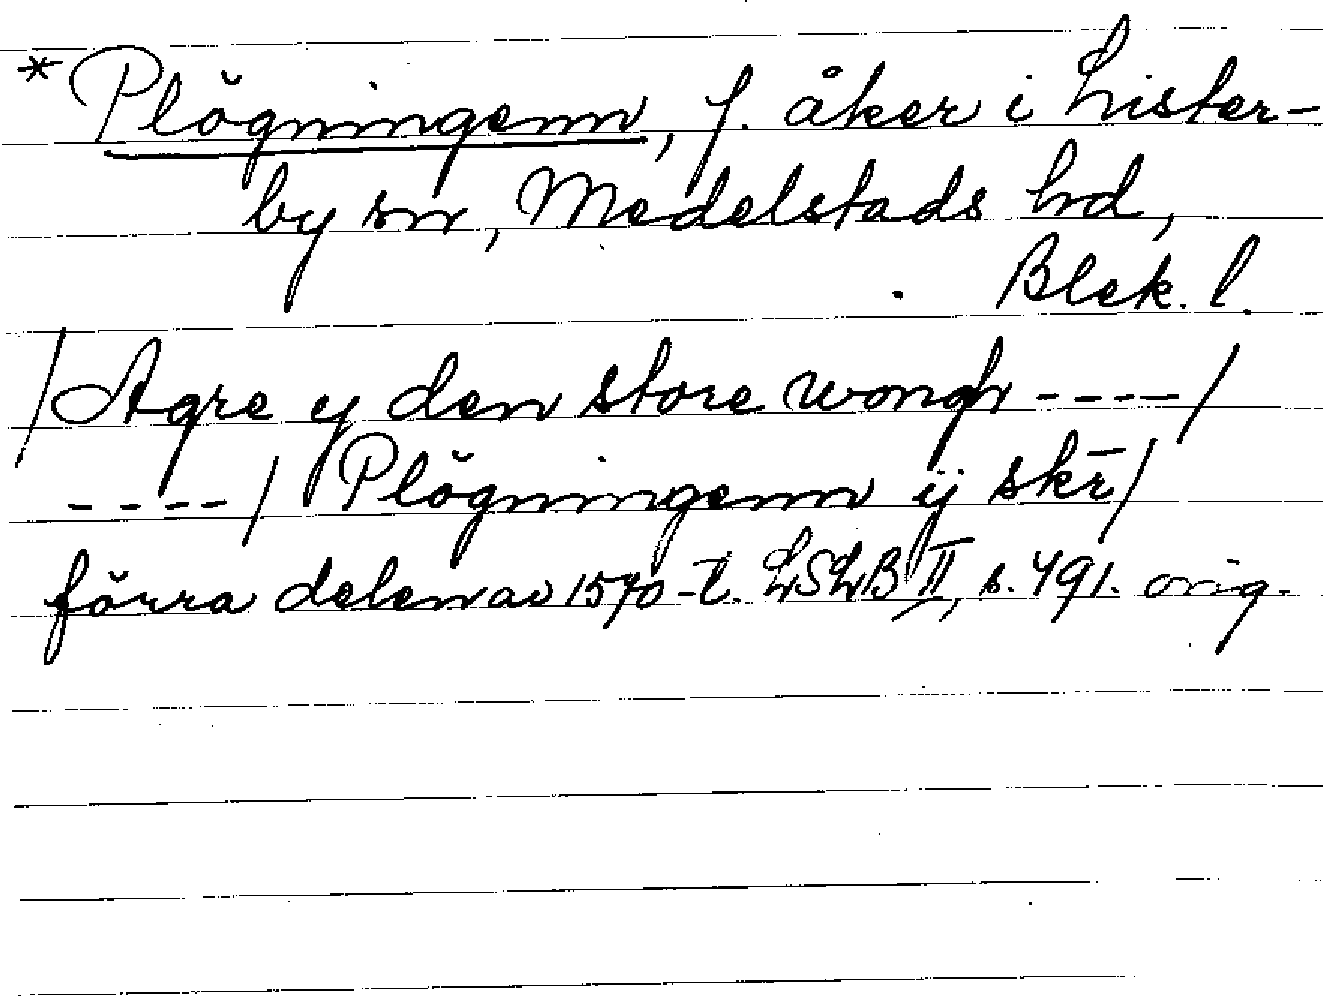 * Plögningenn, f. åker i Lister-
by sn, Medelstads hd,
Blek. l.
/Agre y den store wongh ----/
----/ Plögningenn ij skr̄/
förra delen av 1570-t. LSLB II, s. 491. orig.